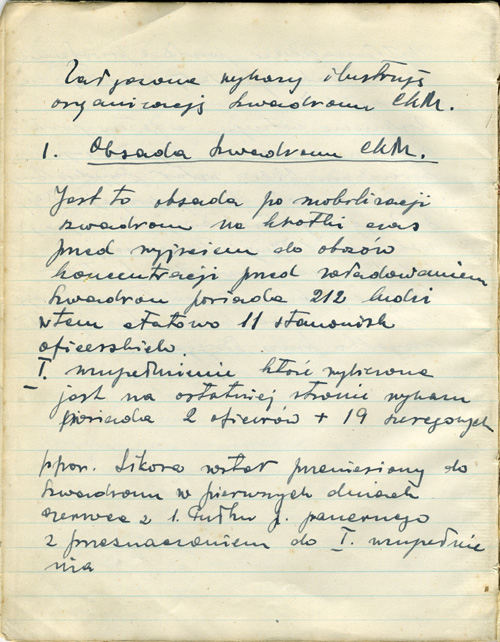 Załączone wykazy ilustrują
organizację szwadronu CKM.
1. Obsada szwadronu CKM.
Jest to obsada po mobilizacji
szwadronu na krótki czas
przed wyjściem do obozów
koncentracji przed załadowaniem
szwadron posiada 212 ludzi
w tem etatowo 11 stanowisk
oficerskich.
I. uzupełnienie które wyliczone
jest na ostatniej stronie wykazu
posiada 2 oficerów + 19 szeregowych
ppor. Sikora został przeniesiony do
szwadronu w pierwszych dniach
czerwca z 1. Pułku p. pancernego
z przeznaczeniem do I. uzupełnie
nia